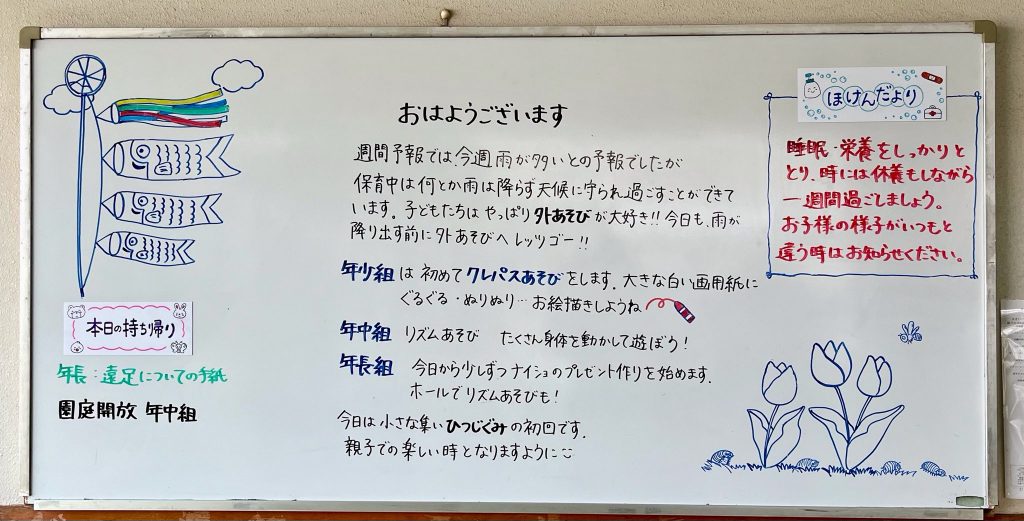 おはようございます
週間予報では、今週雨が多いとの予報でしたが
保育中は何とか雨は降らず天候に守られ過ごすことができて
います。子どもたちは やっぱり外あそびが大好き!! 今日も、雨が
降り出す前に外あそびへレッツゴー!!
年少組は 初めてクレパスあそびをします。大きな白い画用紙に
ぐるぐる・ぬりぬり… お絵描きしようね
年中組 リズムあそび たくさん身体を動かして遊ぼう!
年長組 今日から少しずつナイショのプレゼント作りを始めます。
ホールでリズムあそびも!
今日は小さな集いひつじぐみの初回です。
親子での楽しい時となりますように
本日の持ち帰り
年長:遠足についての手紙
園庭開放 年中組
ほけんだより
睡眠・栄養をしっかりと
とり、時には休養もしながら
一週間過ごしましょう。
お子様の様子がいつもと
違う時はお知らせください。